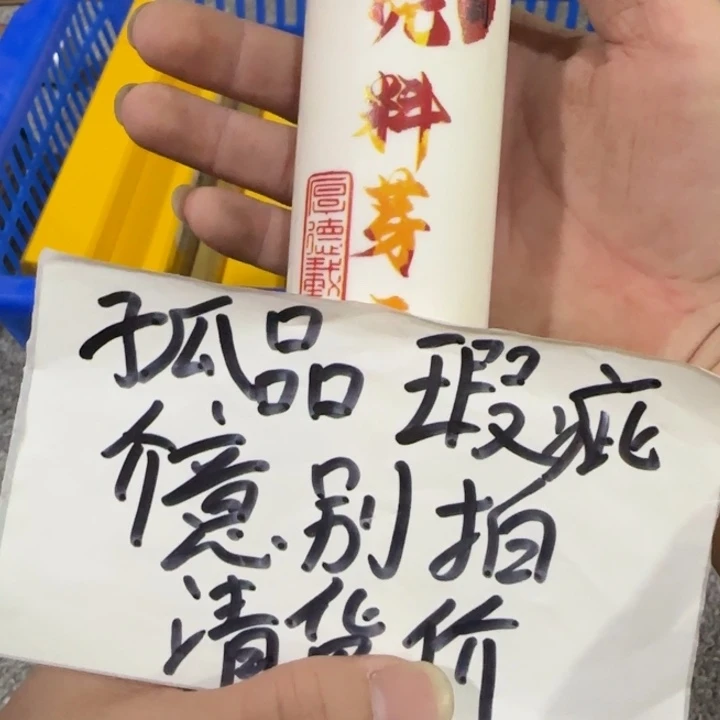 料芽
孤品 瑕疵
介意别拍
清货价